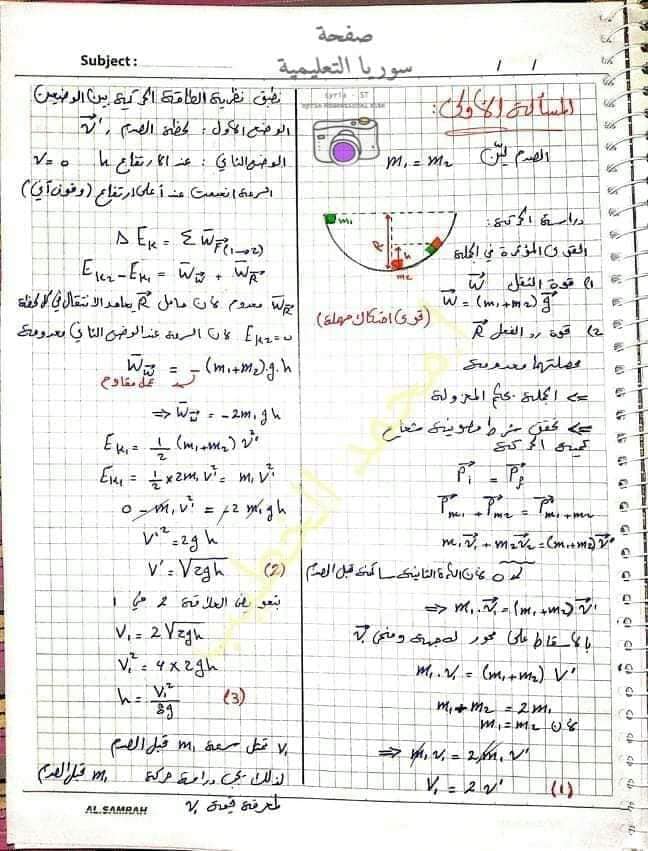 Subject :
صفحة
سوريا التعليمية
/ /
المسألة الأولى:
الصدم ليّن m₁ = m₂
m₁
R
h
m₂
دراسة الحركة:
القوى المؤثرة في الجملة
1) قوة الثقل W⃗
W⃗ = (m₁+m₂) g⃗
(قوى احتكاك مهملة)
2) قوة رد الفعل R⃗
محصلتها معدومة
=> الجملة بحكم المعزولة
=> تحقق شرط مصونية شعاع
كمية الحركة
P⃗ᵢ = P⃗f
P⃗m₁ + P⃗m₂ = P⃗m₁+m₂
m₁v⃗₁ + m₂v⃗₂ = (m₁+m₂)v⃗'
0 لأن الكرة الثانية ساكنة قبل الصدم
=> m₁.v⃗₁ = (m₁+m₂)v⃗'
بالإسقاط على محور له جهة ومنحى v⃗₁
m₁.v₁ = (m₁+m₂) v'
m₁+m₂ = 2m₁
لأن m₁=m₂
=> m₁v₁ = 2m₁v'
v₁ = 2v' (1)
نطبق نظرية الطاقة الحركية بين الوضعين
الوضع الأول: لحظة الصدم, v⃗'
الوضع الثاني: عند الارتفاع h v=0
السرعة انعدمت عند أعلى ارتفاع (وقوف آني)
ΔEk = ΣW̄F⃗(1→2)
Ek₂ - Ek₁ = W̄W⃗ + W̄R⃗
W̄R⃗ معدوم لأن حامل R⃗ يعامد الانتقال في كل لحظة
Ek₂=0 لأن السرعة عند الوضع الثاني معدومة
W̄W⃗ = -(m₁+m₂).g.h
عمل مقاوم
=> W̄W⃗ = -2m₁gh
Ek₁ = ½ (m₁+m₂) v'²
Ek₁ = ½ × 2m₁v'² = m₁v'²
0 - m₁v'² = -2m₁gh
v'² = 2gh
v' = √2gh (2)
نعوض العلاقة 2 في 1
v₁ = 2√2gh
v₁² = 4×2gh
h = v₁²/8g (3)
v₁ تمثل سرعة m₁ قبل الصدم
لذلك يجب دراسة حركة m₁ قبل الصدم
لمعرفة قيمة v₁
أحمد الخطيب
AL SAMRAH